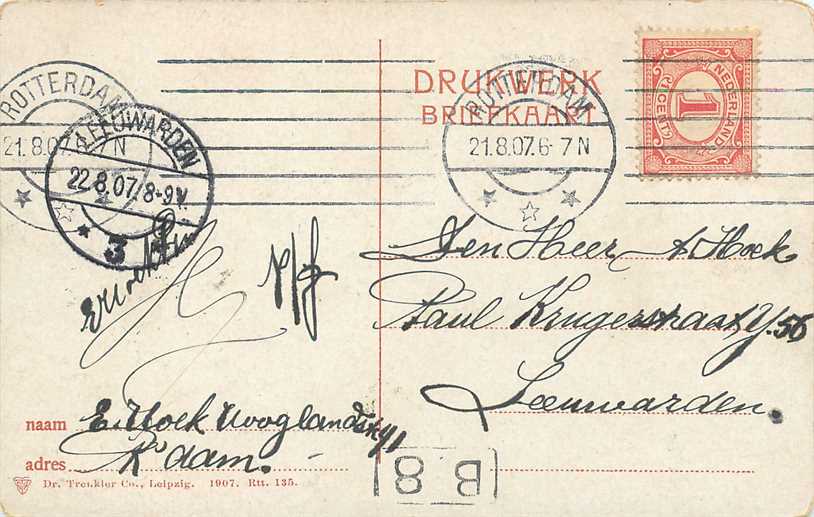 DRUKWERK
BRIEFKAART
NEDERLAND
1
CENT
ROTTERDAM
21.8.07.6-7N
ROTTERDAM
21.8.07.6-7N
LEEUWARDEN
22.8.07.8-9V.
3
Den Heer A Hoek
Paul Krugerstraat 56
Leeuwarden.
naam E. Hoek
adres R'dam.
B 8
Dr. Trenkler Co., Leipzig. 1907. Rtt. 135.